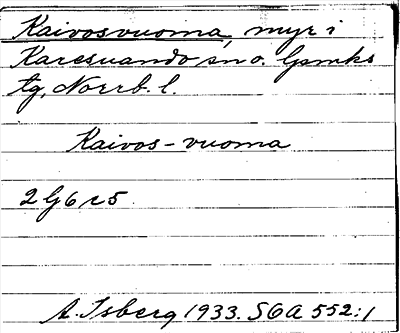 Kaivosvuoma, myr i
Karesuando sn o. lpmks
tg, Norrb. l.
Kaivos-vuoma
2 G 6 r 5
A. Isberg 1933. SGA 552:1